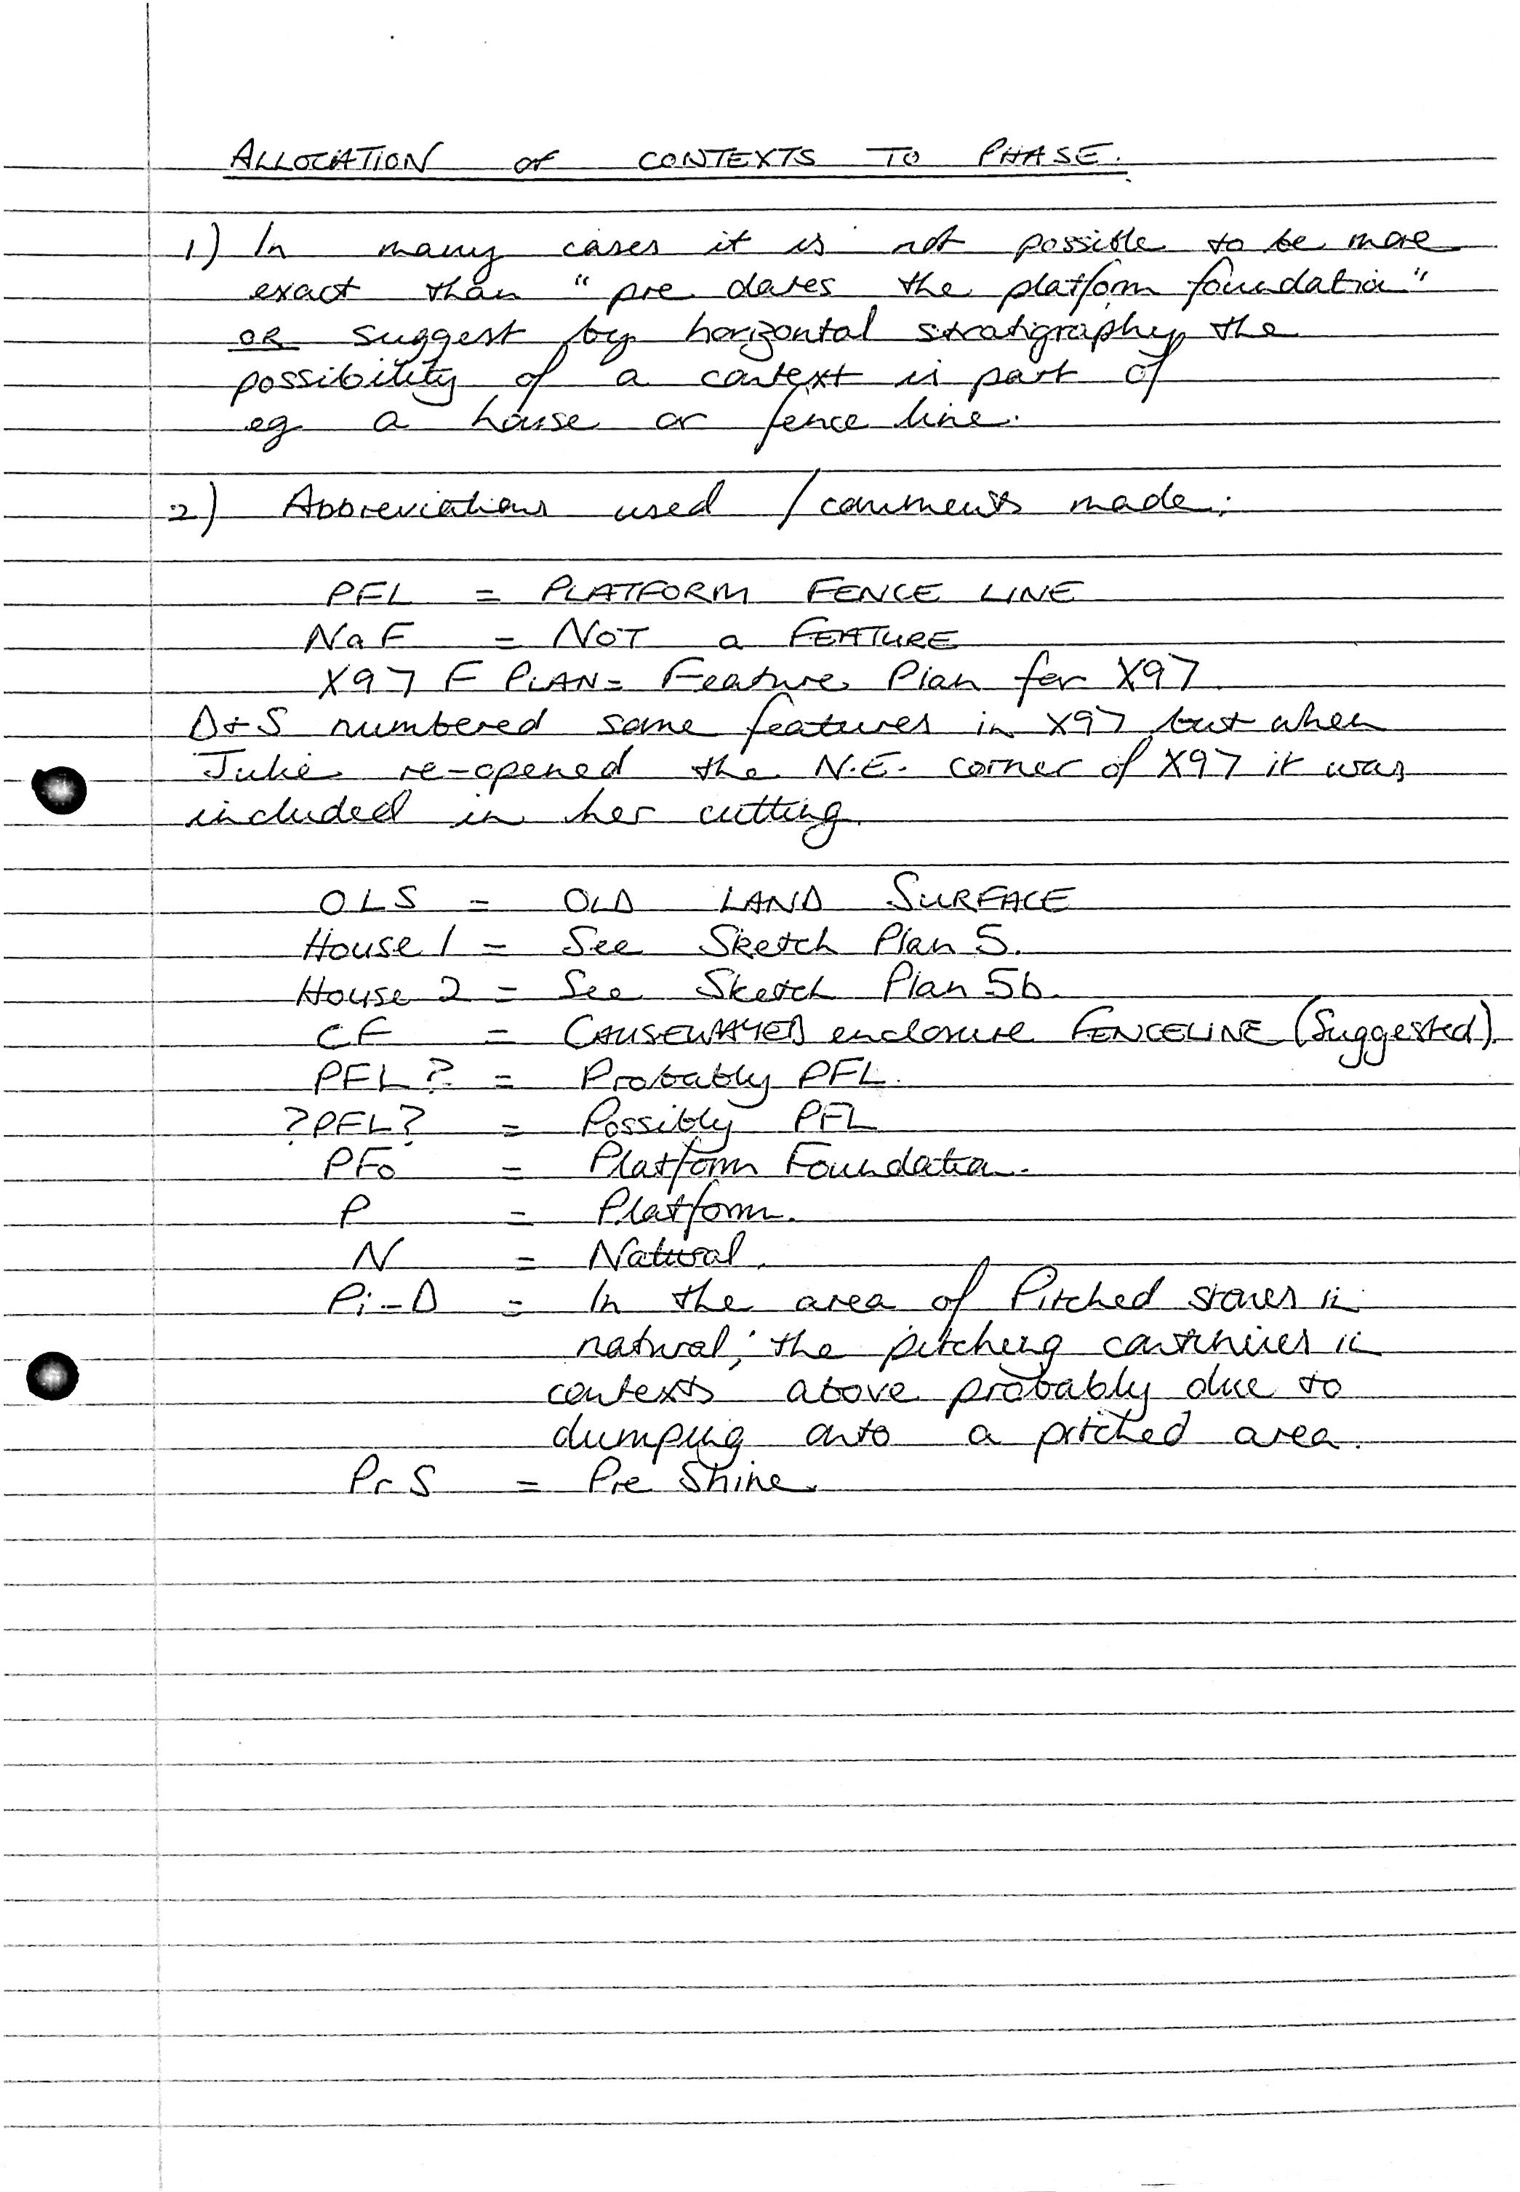 ALLOCATION of CONTEXTS TO PHASE.
1) In many cases it is not possible to be more
exact than "pre dates the platform foundation"
OR suggest by horizontal stratigraphy the
possibility of a context is part of
eg a house or fence line.
2) Abbreviations used / comments made:
PFL = PLATFORM FENCE LINE
NaF = NOT a FEATURE
X97 F PLAN = Feature Plan for X97.
D+S numbered some features in X97 but when
Julie re-opened the N.E. corner of X97 it was
included in her cutting.
OLS = OLD LAND SURFACE
House 1 = See Sketch Plan 5.
House 2 = See Sketch Plan 5b.
CF = CAUSEWAYED enclosure FENCELINE (Suggested)
PFL? = Probably PFL.
?PFL? = Possibly PFL
PFo = Platform Foundation.
P = Platform.
N = Natural.
Pi-D = In the area of Pitched stones in
natural; the pitching continues in
contexts above probably due to
dumping onto a pitched area.
PrS = Pre Shine.